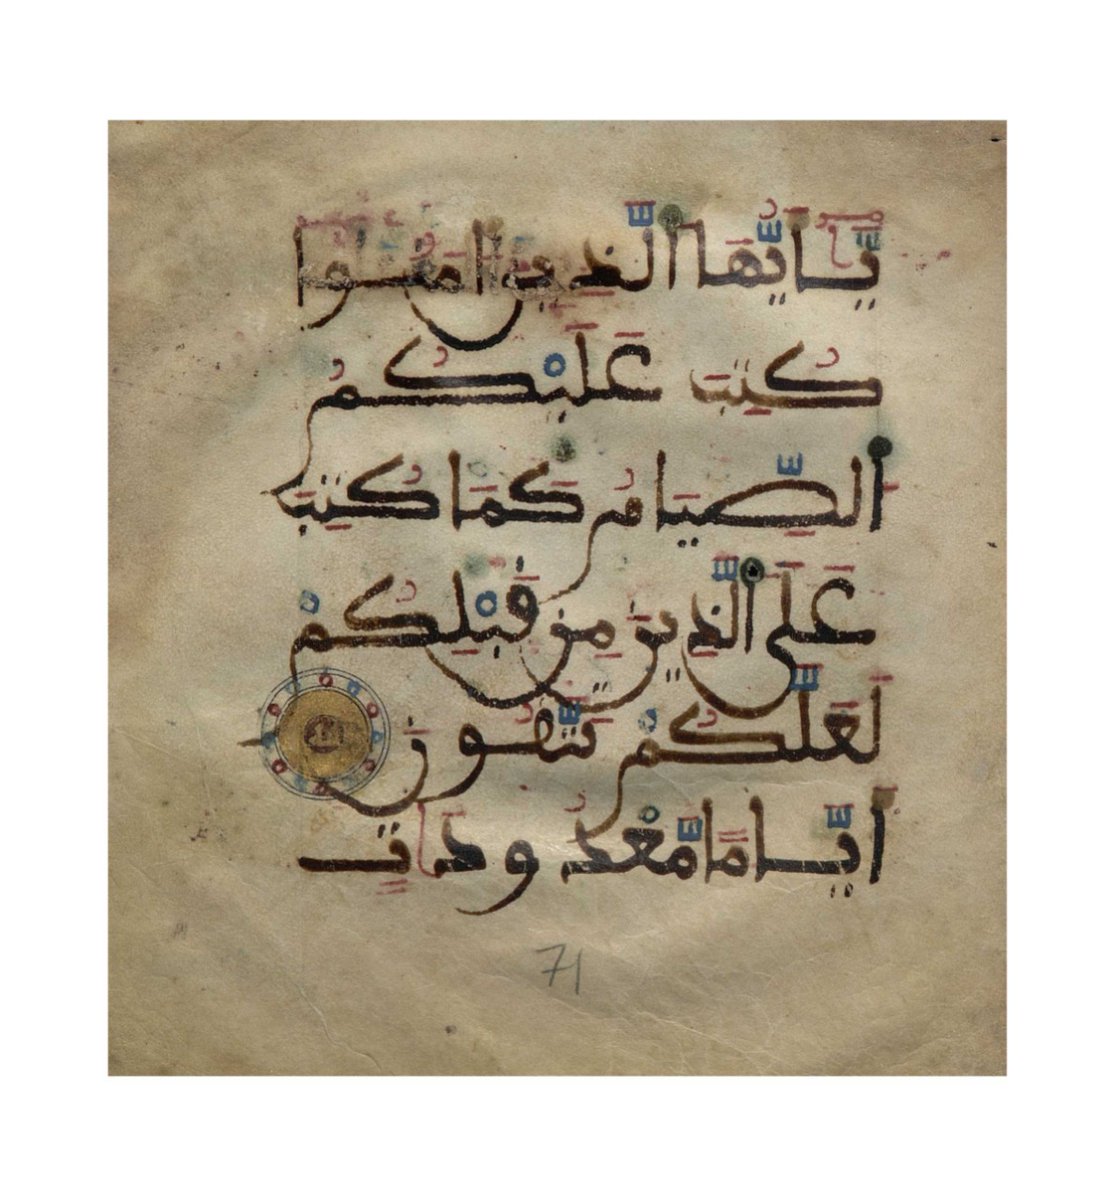 يَٰأَيُّهَا الَّذِينَ ءَامَنُوا
كُتِبَ عَلَيْكُمُ
الصِّيَامُ كَمَا كُتِبَ
عَلَى الَّذِينَ مِن قَبْلِكُمْ
لَعَلَّكُمْ تَتَّقُونَ
أَيَّامًا مَّعْدُودَٰتٍ
71